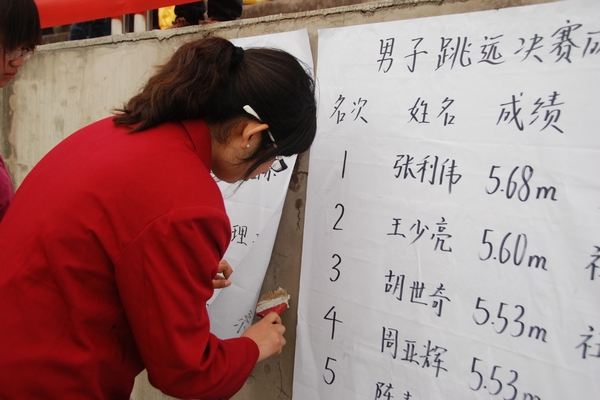 男子跳远决赛成
名次 姓名 成绩
1 张利伟 5.68m
2 王少亮 5.60m
3 胡世奇 5.53m
4 周亚辉 5.53m
5 陈
理